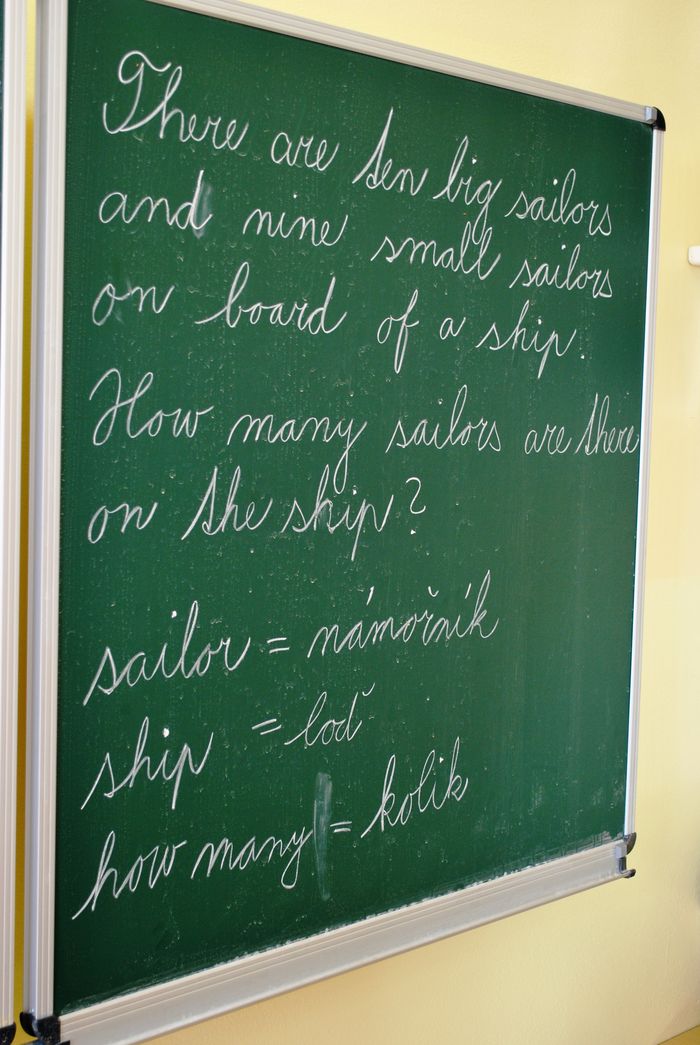 There are ten big sailors
and nine small sailors
on board of a ship.
How many sailors are there
on the ship?
sailor = námořník
ship = loď
how many = kolik